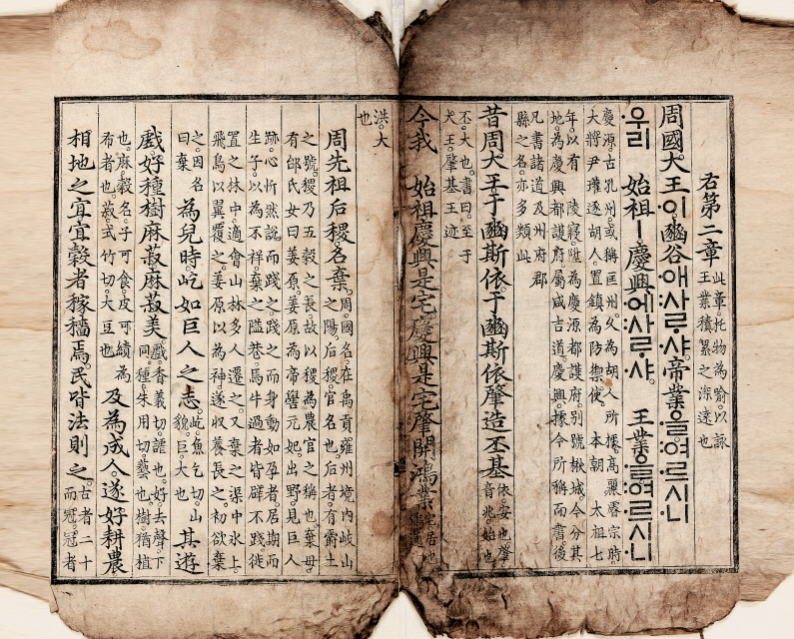 右第二章
此章託物為喩以詠
王業積累之深遠也
周國大王이豳谷애사ᄅᆞ샤帝業을여르시니
우리 始祖ㅣ慶興에사ᄅᆞ샤 王業을여르시니
慶源古孔州或稱匡州久為胡人所據高麗睿宗時
大將尹瓘逐胡人置鎮為防禦使 本朝 太祖七
年以有 陵寢陞為慶源都護府別號楸城今分其
地為慶興都護府屬咸吉道慶興據今所稱而書後
凡書諸道及州府郡
縣之名亦多類此
昔周大王于豳斯依于豳斯依肇造丕基
依安也肇
音兆始也
丕大也書曰至于
大王肇基王迹
今我 始祖慶興是宅慶興是宅肇開鴻業
宅居也
洪大
也
周先祖后稷名棄
周國名在禹貢雍州境內岐山
之陽后稷官名也后者有爵土
之號稷乃五穀之長故以稷為農官之稱也棄母
有邰氏女曰姜原姜原為帝嚳元妃出野見巨人
跡心忻然說而踐之踐之而身動如孕者居期而
生子以為不祥棄之隘巷馬牛過者皆辟不踐徙
置之林中適會山林多人遷之又棄之渠中氷上
飛鳥以翼覆之姜原以為神遂收養長之初欲棄
之因名
曰棄
為兒時屹如巨人之志
屹魚乞切山
貌巨大也
其遊
戲好種樹麻菽麻菽美
戲香義切謔也好去聲下
同種朱用切藝也樹猶植
也麻穀名子可食皮可績為
布者也菽式竹切大豆也
及為成人遂好耕農
相地之宜宜穀者稼穡焉民皆法則之
古者二十
而冠冠者